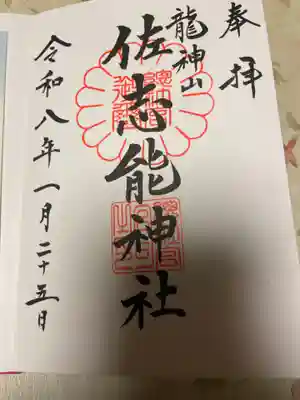 奉拝
龍神山
佐志能神社
令和八年一月二十五日